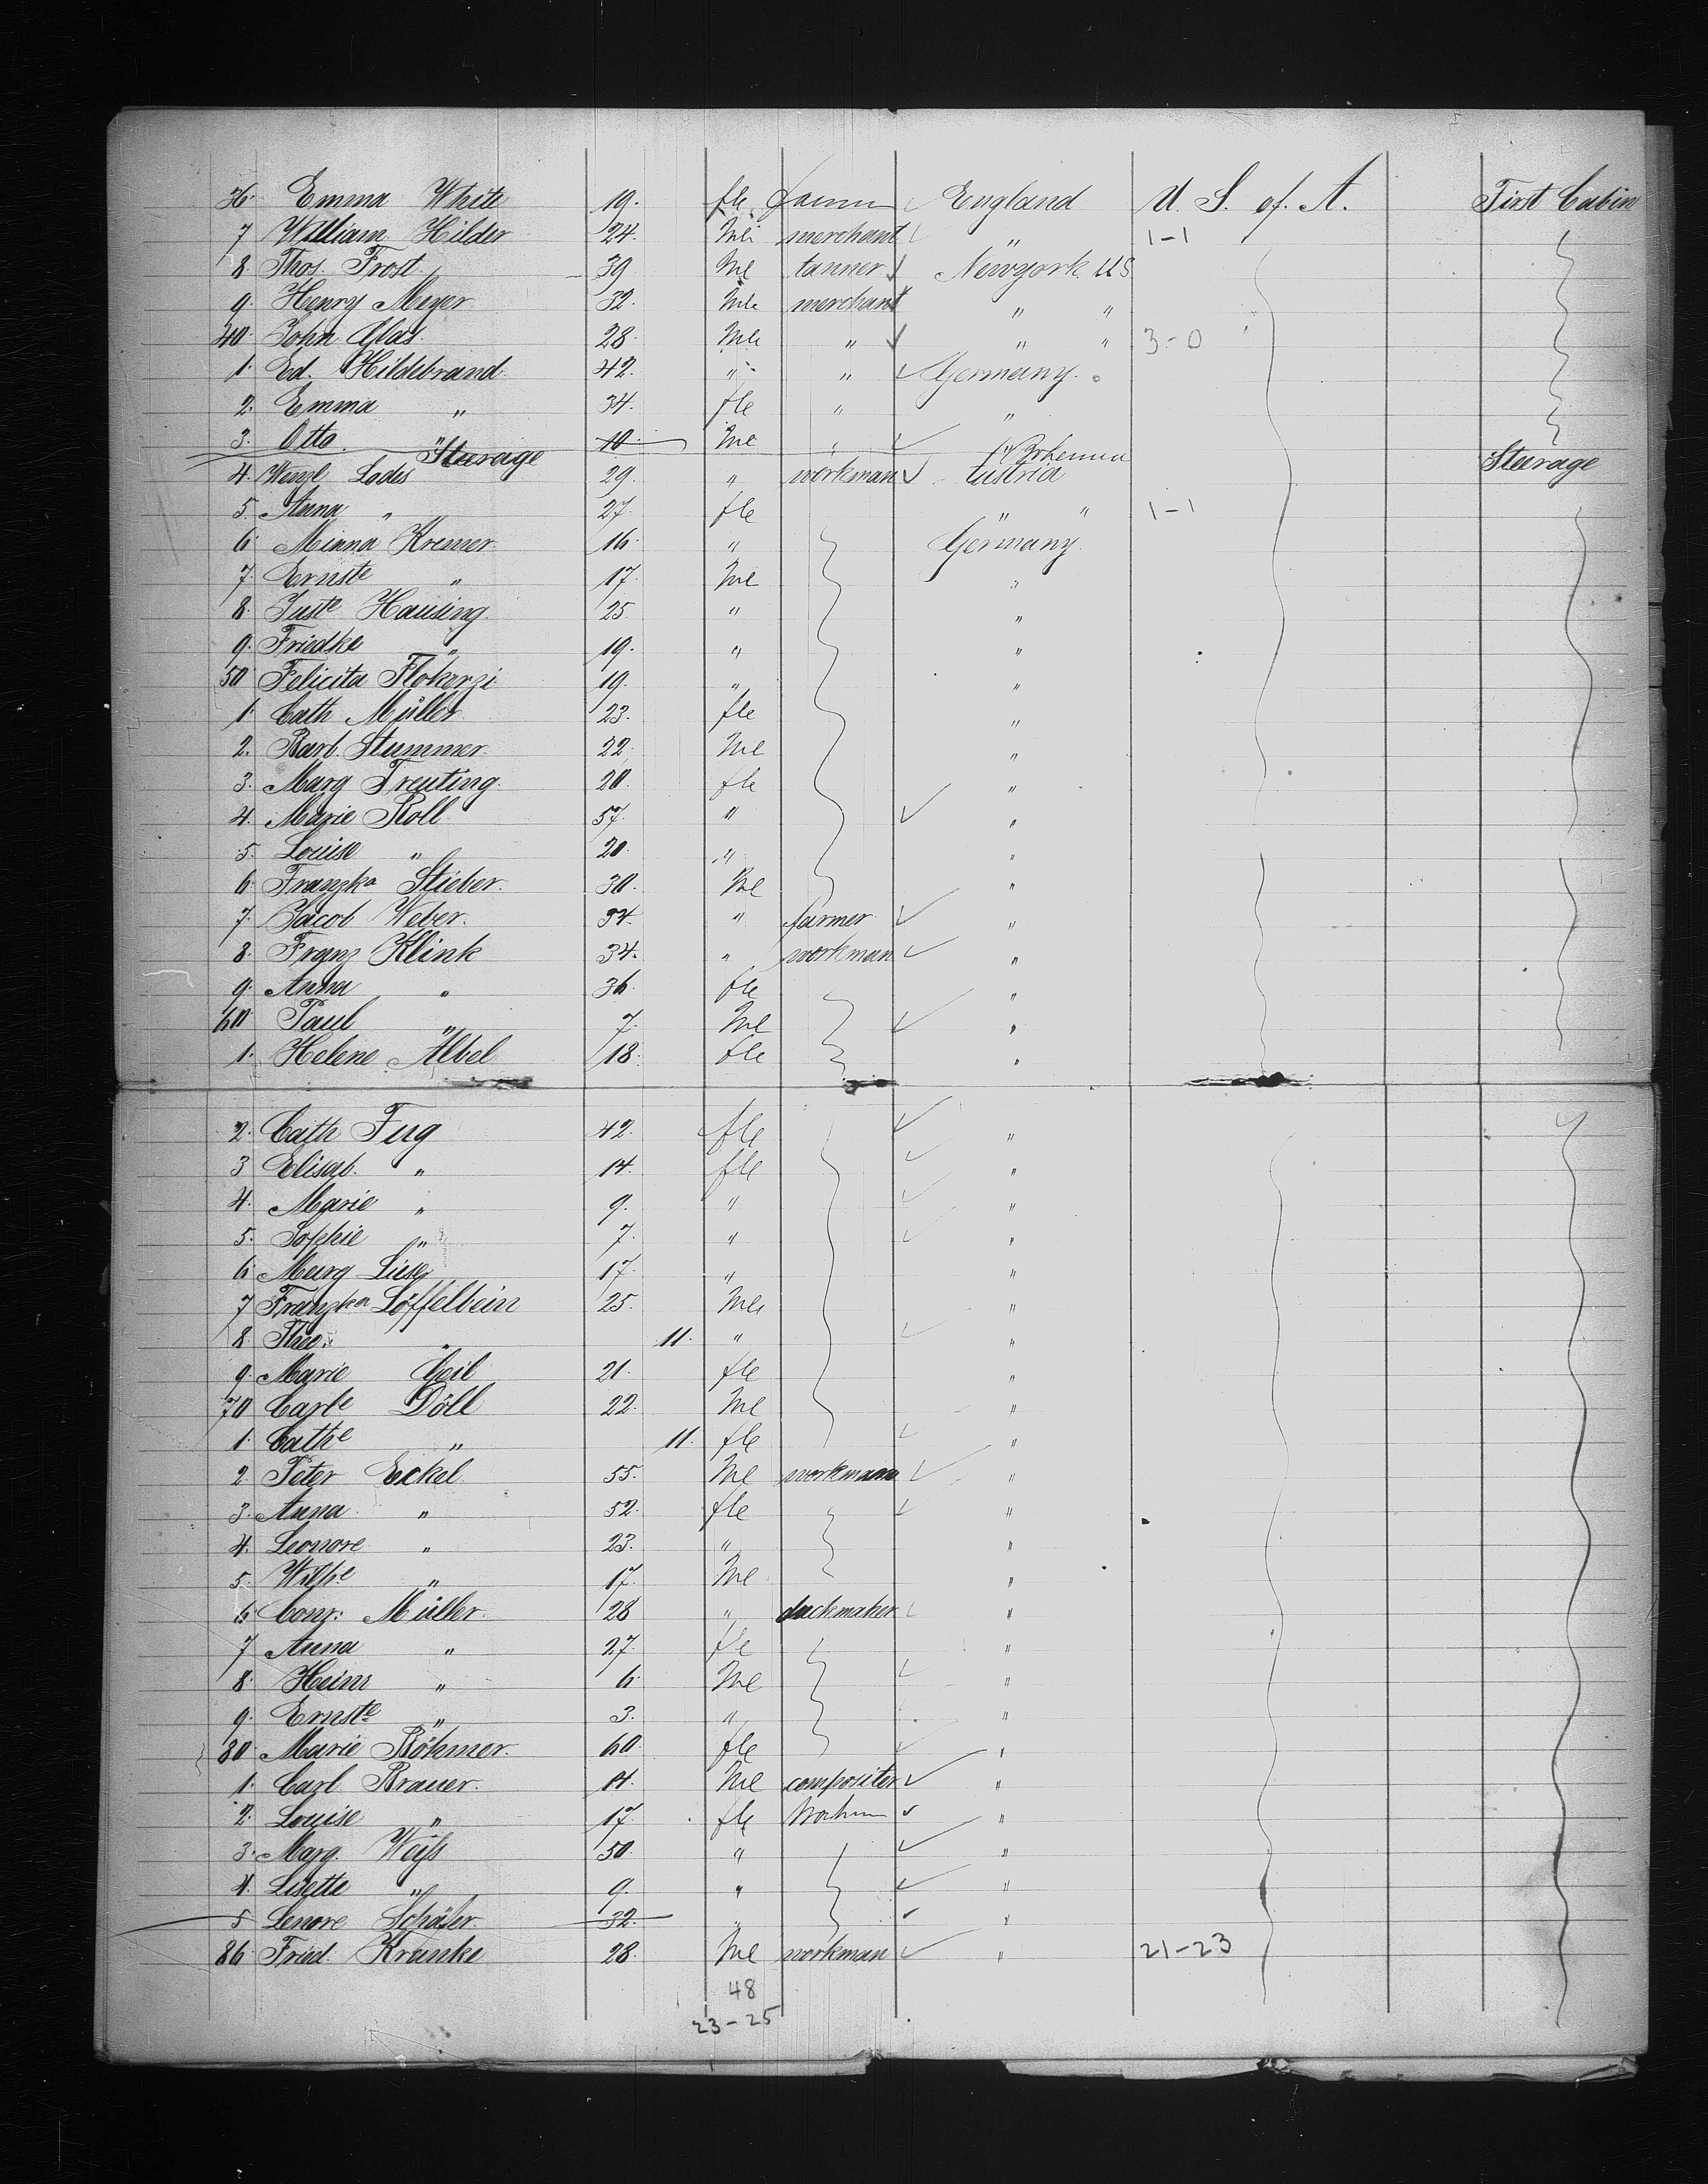 36. Emma White 19. fle England U. S. of. A. First Cabin
7 William Hilder 24. Mle merchant " 1-1
8. Thos. Frost 39 Ml tanner Newyork US
9. Henry Meyer 32. Mle merchant " "
40. John Glas. 28. Mle " " " 3-0
1. Ed. Hildebrand 42. " " Germany.
2. Emma " 34. fle " "
3. Otto " 10. Ml "
Steerage Bohemia Steerage
4. Wenzl Lodes 29. " workman Austria
5. Anna " 27. fle " " 1-1
6. Minna Kremer. 16. " Germany.
7. Ernste " 17. Ml "
8. Juste Hausing. 25. " "
9. Friedke " 19. " "
50 Felicita Flokerzi 19. " "
1. Cath Müller. 23. fle "
2. Barb. Stummer. 22. Ml "
3. Marg Treuting. 20. fle "
4. Marie Roll 57. " "
5. Louise " 20. " "
6. Franzka Stieber. 30. Ml "
7. Jacob Weber. 34. " farmer "
8. Franz Klink 34. " workman "
9. Anna " 36. fle "
60 Paul " 7. Ml "
1. Helene Albel 18. fle "
2. Cath Fug 42. fle "
3 Elisab. " 14. fle "
4. Marie " 9. " "
5. Sophie " 7. " "
6. Marg 17. " "
7 Franzka Löffelbein 25. Mle "
8 Theo. " 11. " "
9. Marie Geil 21. fle "
70 Carle Döll 22. Ml "
1. Cathe " 11. fle "
2. Peter Eckel 55. Ml workmann "
3. Anna " 52. fle "
4. Leonore " 23. " "
5. Wilhe " 17. Ml "
6. Conr. Müller. 28 " "
7 Anna " 27. fle "
8. Heinr " 6. Ml "
9. Ernste " 3. " "
80. Marie Böhmer. 60. fle "
1. Carl Brauer. Ml compositor "
2. Louise " 17. fle "
3. Marg. Weifs 50. " "
4. Lisette " 9. " "
5 Lenore Schäfer. 32. " "
86 Fried. Kranke 28. Ml workman " 21-23
48
23-25